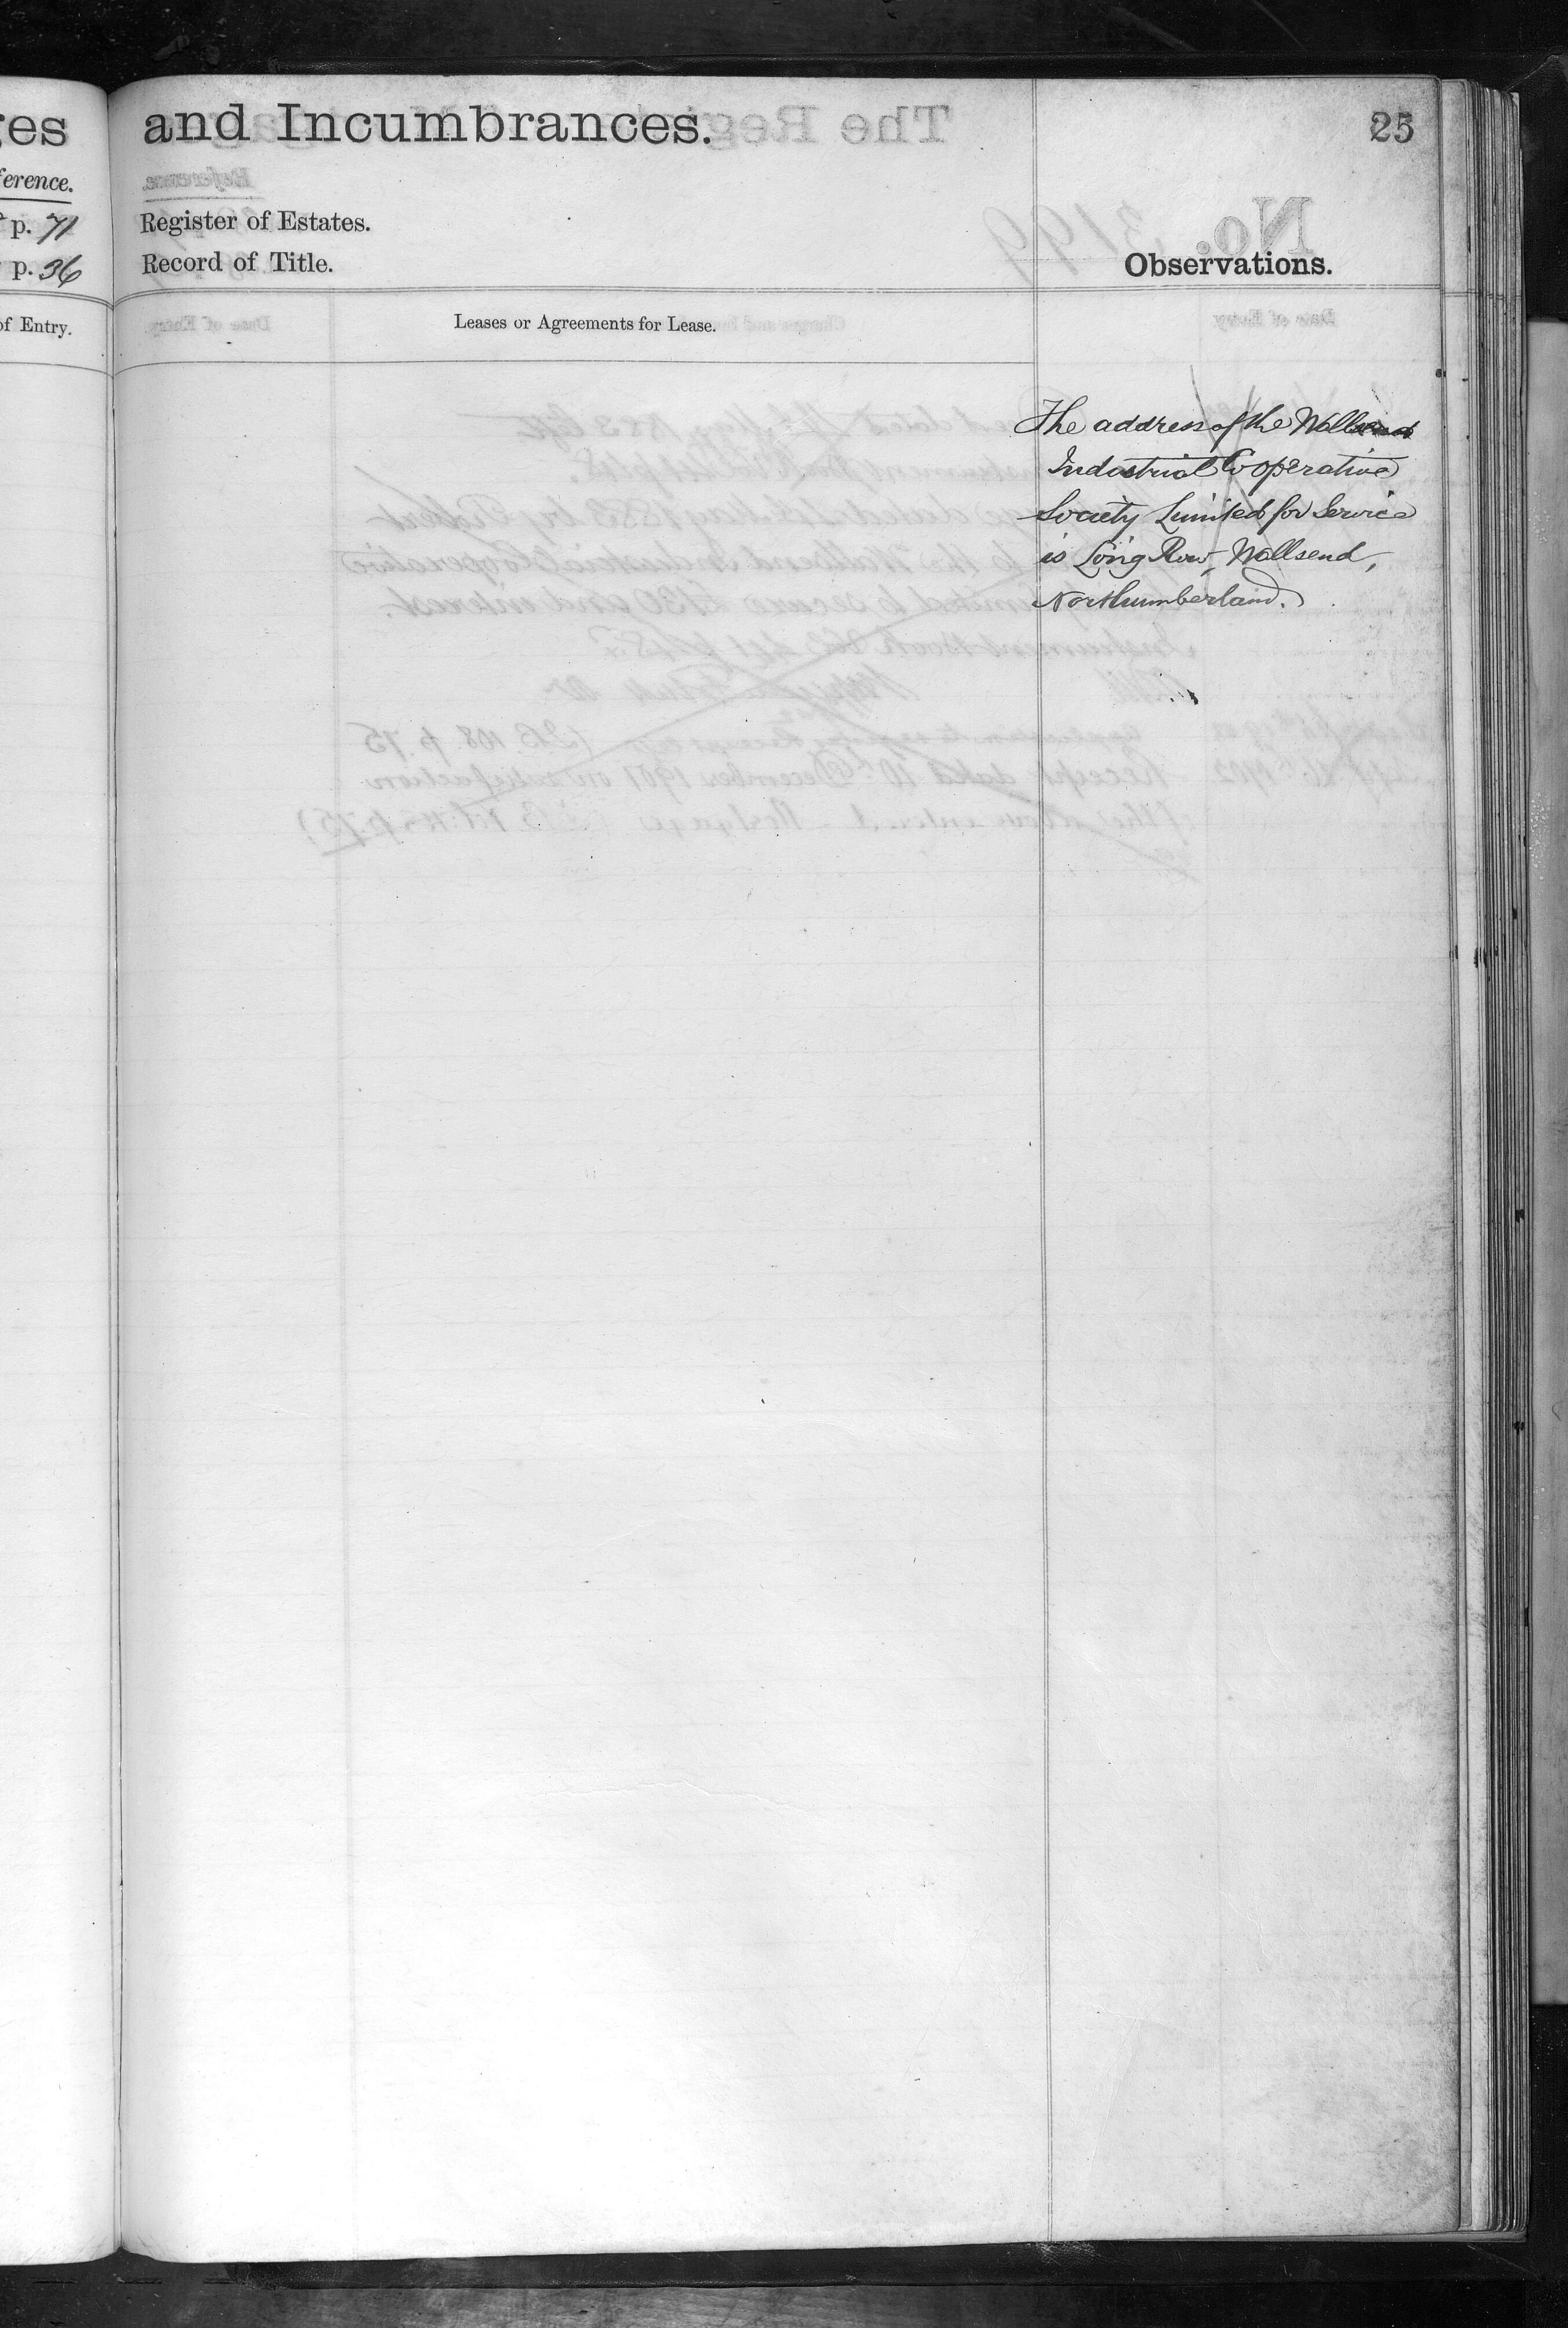 ges and Incumbrances.
25
erence.
p. 71
Register of Estates.
p. 36
Record of Title.
Observations.
of Entry.
Leases or Agreements for Lease.
The address of the Wallsend
Industrial Cooperative
Society Limited for Service
is Long Row, Wallsend,
Northumberland.